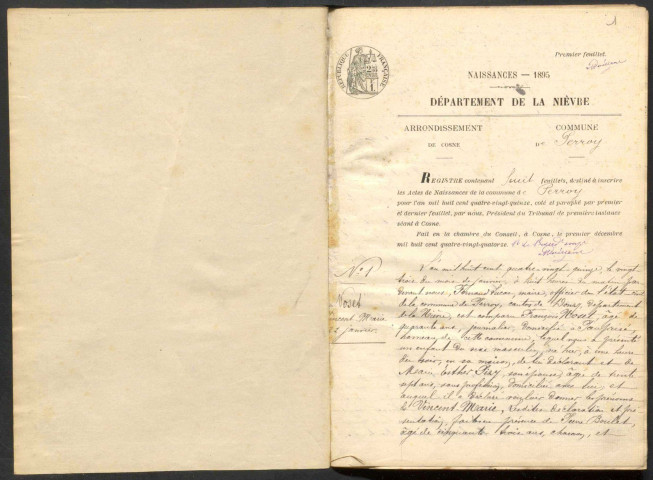 1
Premier feuillet.
RÉPUBLIQUE FRANÇAISE
NAISSANCES — 1895
DÉPARTEMENT DE LA NIÈVRE
ARRONDISSEMENT
DE COSNE
COMMUNE
DE Perroy
REGISTRE contenant huit feuillets, destiné à inscrire
les Actes de Naissances de la commune de Perroy
pour l'an mil huit cent quatre-vingt-quinze, coté et paraphé par premier
et dernier feuillet, par nous, Président du Tribunal de première instance
séant à Cosne.
Fait en la chambre du Conseil, à Cosne, le premier décembre
mil huit cent quatre-vingt-quatorze.
N° 1
Vincent Marie
L'an mil huit cent quatre-vingt-quinze, le vingt
trois du mois de janvier, à huit heures du matin, par
devant nous, maire, officier de l'état civil
de la commune de Perroy, canton de Donzy, département
de la Nièvre, est comparu François, âgé de
quarante ans, journalier, domicilié à
hameau de cette commune, lequel nous a présenté
un enfant du sexe masculin, né hier, à une heure
du soir, en sa maison, de lui déclarant et de
Esther, son épouse, âgée de trente
sept ans, sans profession, domiciliée avec lui, et
auquel il a déclaré vouloir donner les prénoms
de Vincent Marie, lesdites déclaration et pré
sentation faites en présence de Pierre
âgé de cinquante trois ans, et